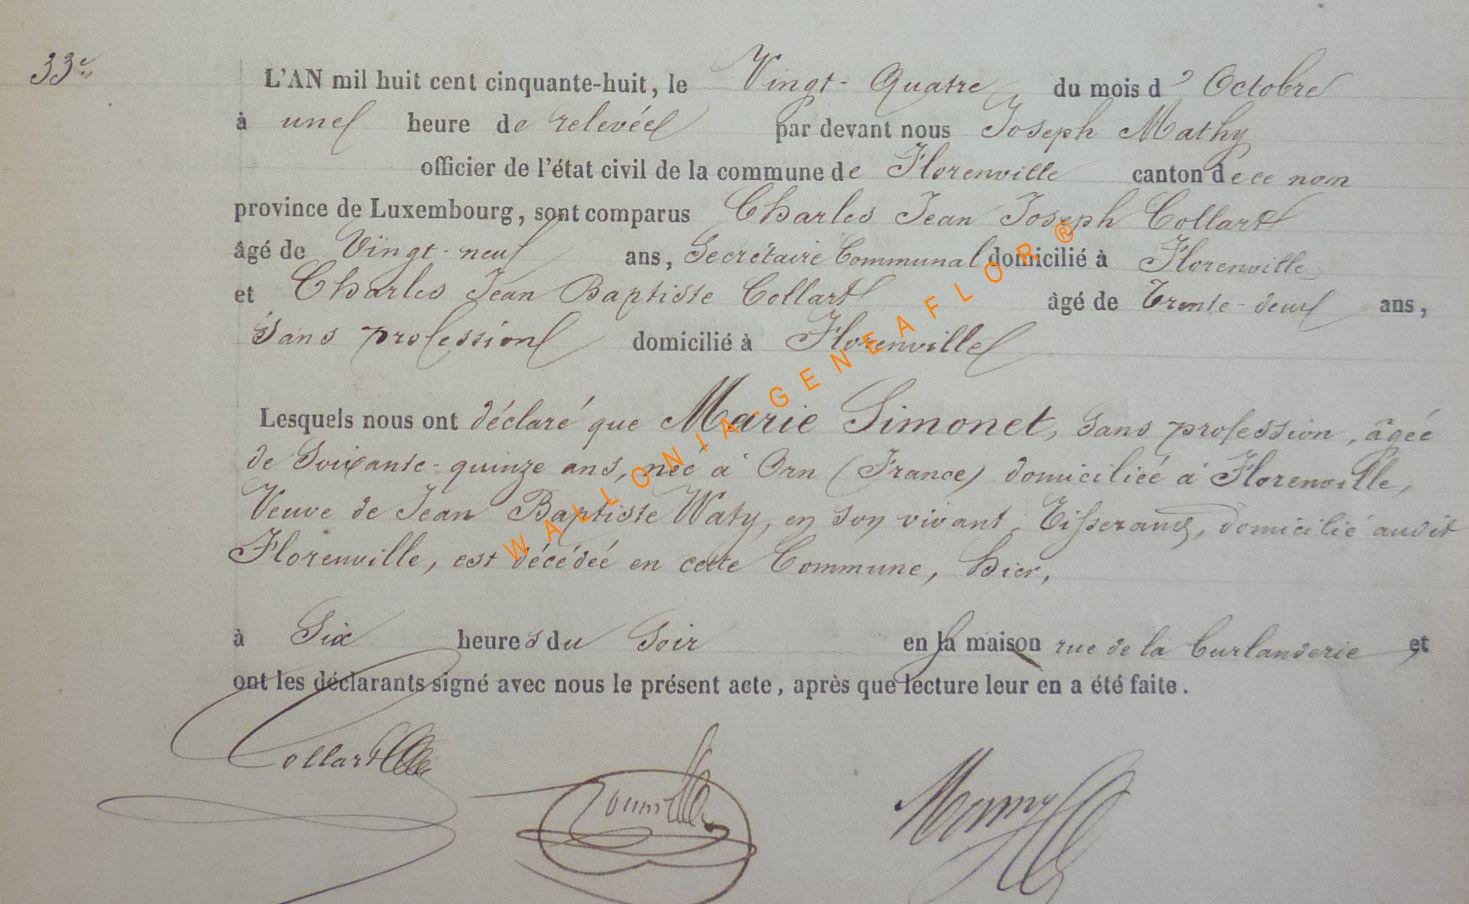 33e
L'AN mil huit cent cinquante-huit, le Vingt-Quatre du mois d'Octobre
à une heure de relevée par devant nous Joseph Mathy
officier de l'état civil de la commune de Florenville canton de ce nom
province de Luxembourg, sont comparus Charles Jean Joseph Collart
âgé de Vingt-neuf ans, Secrétaire Communal domicilié à Florenville
et Charles Jean Baptiste Collart âgé de Trente-deux ans,
Sans profession domicilié à Florenville
Lesquels nous ont déclaré que Marie Simonet, Sans profession, âgée
de Soixante-quinze ans, née à Orn (France) domiciliée à Florenville,
Veuve de Jean Baptiste Waty, en son vivant, Tisserand, domicilié audit
Florenville, est décédée en cette Commune, hier,
à Six heures du Soir en la maison rue de la Curlanderie et
ont les déclarants signé avec nous le présent acte, après que lecture leur en a été faite.
Collart
WALLONIA-GENEAFLOR®